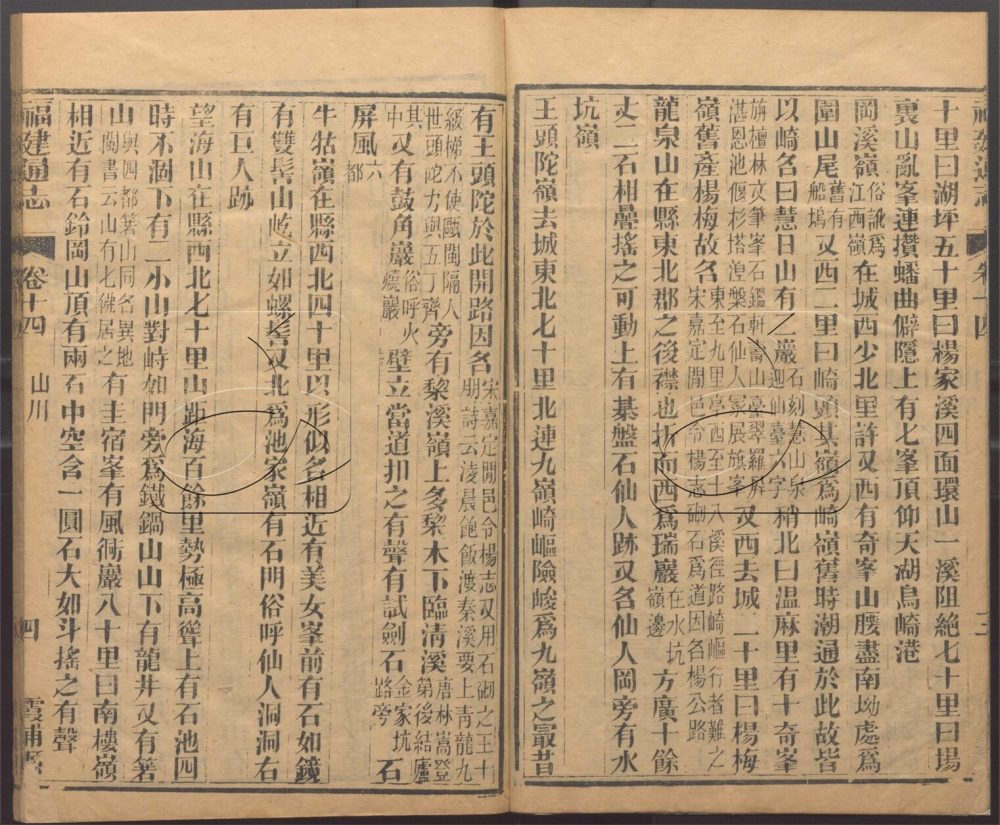 十里曰湖坪五十里曰楊家溪四面環山一溪阻絶七十里曰場
裏山亂峯連攢蟠曲僻隱上有七峯頂仰天湖烏崎港
岡溪嶺俗訛爲江西嶺在城西少北里許又西有奇峯山腰盡南坳處爲
圍山尾舊有船塢又西二里曰崎頭其嶺爲崎嶺舊時潮通於此故皆
以崎名曰慧日山有三巖石刻慧山泉迎仙臺六字稍北曰温麻里有十奇峯
旃檀林文筆峯石鑑軒壽山臺翠羅屏湛恩池偃杉塔湟槃石仙人冢展旗峯又西去城二十里曰楊梅
嶺舊產楊梅故名東至九里亭西至十八溪徑路崎嶇行者難之宋嘉定間邑令楊志砌石爲道因名楊公路
龍泉山在縣東北郡之後襟也折而西爲瑞巖在水坑嶺邊方廣十餘
丈二石相疊搖之可動上有棊盤石仙人跡又名仙人岡旁有水
坑嶺
王頭陀嶺去城東北七十里北連九嶺崎嶇險峻爲九嶺之冣昔
有王頭陀於此開路因名宋嘉定間邑令楊志又用石砌之王十朋詩云淩晨飽飯渡秦溪要上青龍九
級梯不使甌閩隔人世頭陀力與五丁齊旁有黎溪嶺上多黎木下臨清溪唐林嵩登第後結廬
其中又有鼓角巖俗呼火燒巖壁立當道扣之有聲有試劍石金家坑路旁石
屏風六都
牛牯嶺在縣西北四十里以形似名相近有美女峯前有石如鏡
有雙髻山屹立如螺髻又北爲池家嶺有石門俗呼仙人洞洞右
有巨人跡
望海山在縣西北七十里山距海百餘里勢極高聳上有石池四
時不涸下有二小山對峙如門旁爲鐵鍋山山下有龍井又有箬
山與四都箬山同名異地閩書云山有七僊居之有主宿峯有風衕巖八十里曰南樓嶺
相近有石鈴岡山頂有兩石中空含一圓石大如斗搖之有聲
福建通志 卷十四 山川 四 霞浦縣